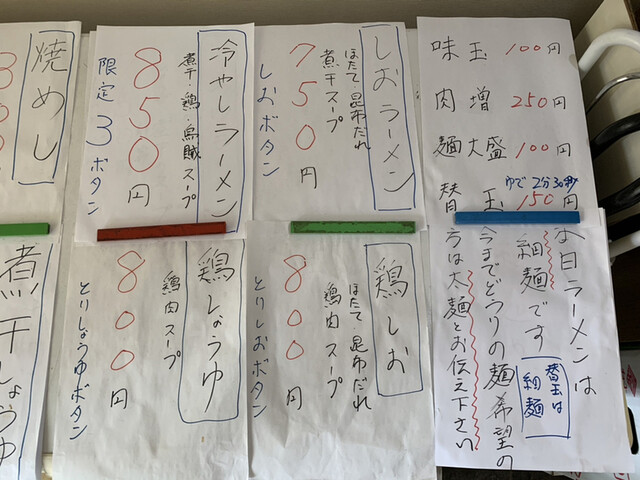 味玉 100円
肉増 250円
麺大盛 100円
ゆで2分30秒
替玉 150円
しおラーメン
ほたて・昆布だれ
煮干スープ
750円
しおボタン
冷やしラーメン
煮干・鶏・烏賊スープ
850円
限定3ボタン
焼めし
本日ラーメンは
細麺です
替玉は
細麺
今までどうりの麺希望の
方は太麺とお伝え下さい
鶏しお
ほたて・昆布だれ
鶏肉スープ
800円
とりしおボタン
鶏しょうゆ
鶏肉スープ
800円
とりしょうゆボタン
煮干しょうゆ